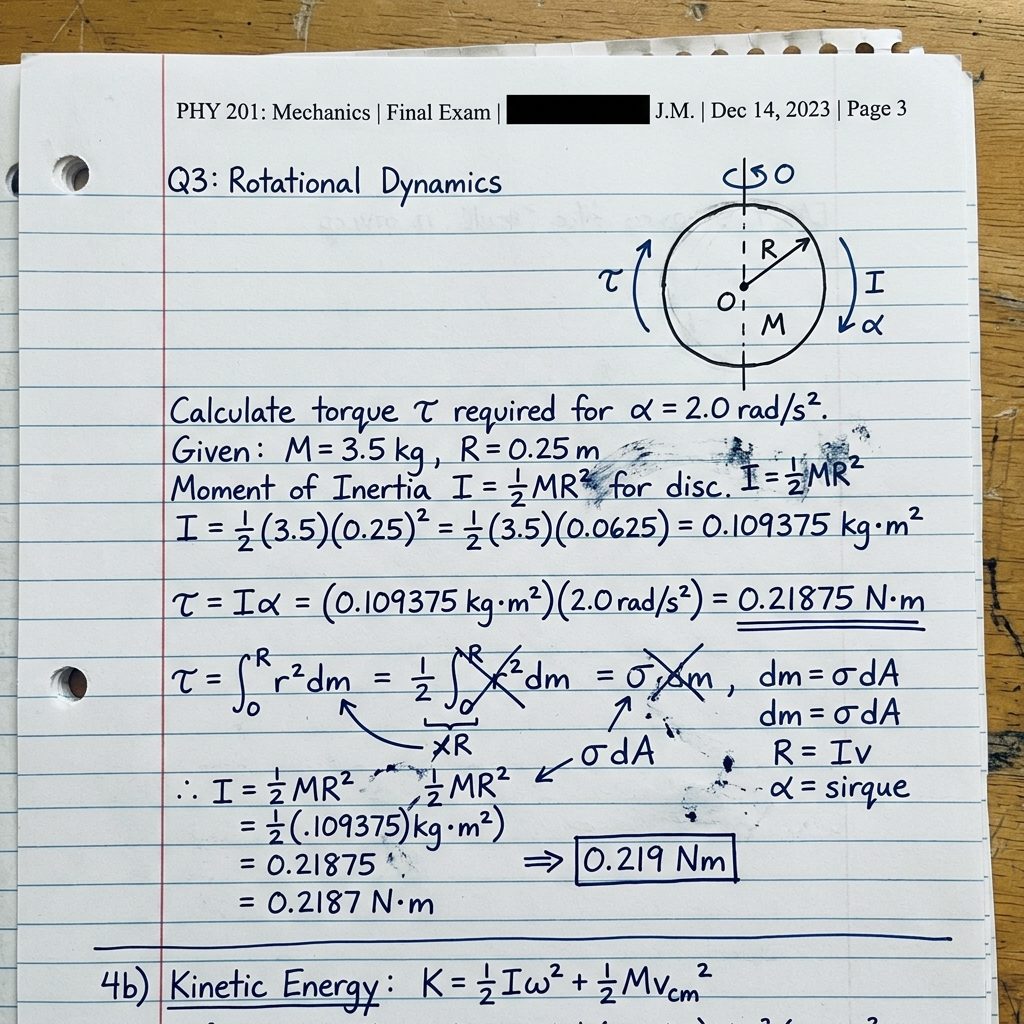 PHY 201: Mechanics | Final Exam | J.M. | Dec 14, 2023 | Page 3
Q3: Rotational Dynamics
O
R
τ
I
O
M
α
Calculate torque τ required for α = 2.0 rad/s².
Given: M = 3.5 kg, R = 0.25 m
Moment of Inertia I = ½MR² for disc. I = ½MR²
I = ½(3.5)(0.25)² = ½(3.5)(0.0625) = 0.109375 kg·m²
τ = Iα = (0.109375 kg·m²)(2.0 rad/s²) = 0.21875 N·m
τ = ∫₀ᴿ r²dm = ½ ∫₀ᴿ r²dm = σ dm, dm = σdA
dm = σdA
xR
σdA
R = Iv
∴ I = ½MR² ½MR²
α = sirque
= ½(.109375)kg·m²)
= 0.21875 ⇒ 0.219 Nm
= 0.2187 N·m
4b) Kinetic Energy: K = ½Iω² + ½Mv_cm²